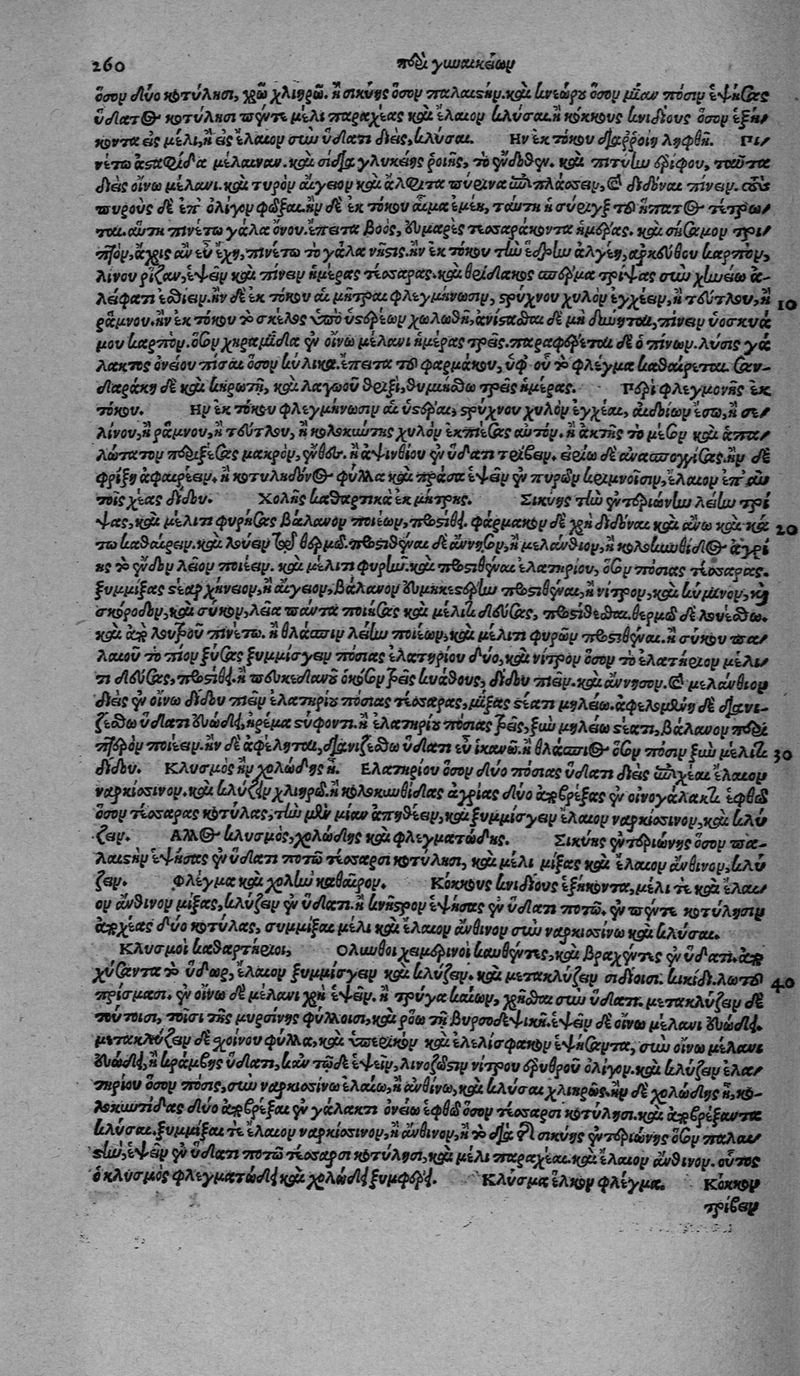 260 περὶ γυναικείων
ὅσον δύο κοτύλῃσι, χρῶ χλιηρῷ. ἢ σικύης ὅσον παλαιστὴν. καὶ κνεώρου ὅσον μίαν πόσιν ἑψήσας
ὕδατος κοτύλῃσι πέντε μέλι παραχέας καὶ ἔλαιον κλύσαι. ἢ κόκκους κνιδίους ὅσον ἑξή-
κοντα εἰς μέλι, ἢ εἰς ἔλαιον σὺν ὕδατι διεὶς, κλύσαι. Ην ἐκ τόκου διαρροίη ληφθῇ. Πι-
νέτω ἀσταφίδα μέλαιναν. καὶ σίδια γλυκείης ῥοιῆς, τὸ ἔνδοθεν. καὶ πιτύην ἐρίφου, ταῦτα
διεὶς οἴνω μέλανι. καὶ τυρὸν αἴγειον καὶ ἄλφιτα πύρινα ἐπιπλάσειν, καὶ διδόναι πίνειν.
πυροὺς δὲ ἐπ' ὀλίγον φῶξαι. ἢν δὲ ἐκ τόκου αἷμα ἐμέῃ, ταύτῃ ἡ σύριγξ τοῦ ἥπατος τέτρω-
ται. αὕτη πινέτω γάλα ὄνου. ἔπειτα βοὸς, τεσσαράκοντα ἡμέρας. καὶ σήσαμον τρι-
πτὸν, ἄχρις ἂν εὖ ἔχῃ, πινέτω τὸ γάλα νῆστις. ἢν ἐκ τόκου τὴν ἕδρην ἀλγέῃ, ἀρκεύθου καρπὸν,
λίνου ῥίζαν, ἕψειν καὶ πίνειν ἡμέρας τέσσαρας. καὶ θρίδακος σπέρμα τρίψας σὺν χηνέῳ ἀ-
λείφατι ἐσθίειν. ἢν δὲ ἐκ τόκου αἱ μῆτραι φλεγμήνωσιν, στρύχνου χυλὸν ἐγχέειν, ἢ τεύτλου, ἢ 10
ῥάμνου. ἢν ἐκ τόκου τὸ σκέλος ὑπὸ ὑστερέων χωλωθῇ, ἀνίστασθαι δὲ μὴ δύνηται, πίνειν ὑοσκυά
μου καρπὸν. ὅσον χηραμίδα ἐν οἴνω μέλανι ἡμέρας τρεῖς. παραφέρεται δὲ ὁ πίνων. λύσις γά
λακτος ὀνείου πῖσαι ὅσον κύλικα. ἔπειτα τοῦ φαρμάκου, ὑφ' οὗ τὸ φλέγμα καθαίρεται. Σαν-
δαράκη δὲ καὶ κηρωτῇ, καὶ λαγωοῦ θριξὶ, θυμιήσθω τρεῖς ἡμέρας. Περὶ φλεγμονῆς ἐκ
τόκου. Ην ἐκ τόκου φλεγμήνωσιν αἱ ὑστέραι, στρύχνου χυλὸν ἐγχέαι, ἔσω, ἢ σε-
λίνου, ἢ ῥάμνου, ἢ τεύτλου, ἢ κολοκύντης χυλὸν ἐκπιέσας αὐτὸν. ἢ ἀκτῆς τὸ μέσον καὶ ἁπα-
λώτατον περιξέσας μακρὸν, ἔνθες. ἢ ἀψινθίου ἐν ὕδατι τρίβειν. εἰρίῳ δὲ ἀνασπογγίσας. ἢν δὲ
φρίξῃ ἀφαιρέειν. ἢ κοτυληδόνος φύλλα καὶ πράσα ἕψειν ἐν πυρῶν κρίμνοισιν, ἔλαιον ἐπ'
τοῖς χέας δίδου. Χολῆς καθαρτικὰ ἐκ μήτρης. Σικύης τὴν ἐντεριώνην λείην τρί
ψας, καὶ μέλιτι φυρήσας βάλανον ποιέων, προστίθει. φάρμακον δὲ χρὴ διδόναι καὶ ἄνω καὶ κά 20
τω καθαίρειν. καὶ λούειν ἐκ θερμοῦ. προστιθέναι δὲ ἄννησον, ἢ μελάνθιον, ἢ κολοκυνθίδος ἀγρί
ης τὸ ἔνδον λεῖον ποιέειν. καὶ μέλιτι φυρῆν. καὶ προστιθέναι ἐλατηρίου, ὅσον πόσιας τέσσαρας.
ξυμμίξας στέαρ χήνειον, ἢ αἴγειον, βάλανον ξυμμηκεστέρην προστιθέναι, ἢ νίτρον, καὶ κύμινον, καὶ
σκόροδον, καὶ σῦκον, λεῖα πάντα ποιήσας καὶ μέλιτι δεύσας, προστίθεσθαι. θερμῷ δὲ λουέσθω.
καὶ ἐκ λουτροῦ πινέτω. ἢ θλάσπιν λείην ποιέων, καὶ μέλιτι φυρῶν προστιθέναι. ἢ σύκου πα-
λαιοῦ τὸ πῖον ξύσας ξυμμίσγειν πόσιας ἐλατηρίου δύο, καὶ νίτρον ὅσον τὸ ἐλατήριον μέλι-
τι δεύσας, προστίθει. ἢ πευκεδάνου ὁκόσον τρεῖς κυάθους, δίδου πιεῖν. καὶ ἄννησον. καὶ μελάνθιον
διεὶς ἐν οἴνω δίδου πιεῖν ἐλατηρίου πόσιας τέσσαρας, μίξας στέατι μηλέῳ. ἀφελομένη δὲ διανι-
ζέσθω ὕδατι εὐώδει, ἠρέμα στύφοντι. ἢ ἐλατηρίου πόσιας τρεῖς, ξὺν μηλέῳ στέατι, βάλανον περὶ
πτερὸν ποιέειν. ἢν δὲ ἀφέληται, διανιζέσθω ὕδατι εὖ ἱκανῶ. ἢ θλάσπιος ὅσον πόσιν ξὺν μέλιτι 30
δίδου. Κλυσμὸς ἢν χολώδης ᾖ. Ελατηρίου ὅσον δύο πόσιας ὕδατι διεὶς ἐπιχέαι ἔλαιον
ναρκίσσινον. καὶ κλύζειν χλιηρῷ. ἢ κολοκυνθίδας ἀγρίας δύο ἀποβρέξας ἐν οἰνογάλακτι ἑφθῷ
ὅσον τέσσαρας κοτύλας, τὴν μὲν μίαν ἀπηθέειν, καὶ ξυμμίσγειν ἔλαιον ναρκίσσινον, καὶ κλύ
ζειν. Αλλος κλυσμὸς, χολώδης καὶ φλεγματώδης. Σικύης ἐντεριώνης ὅσον πα-
λαιστὴν ἑψήσας ἐν ὕδατι ποτῷ τέσσαρσι κοτύλῃσι, καὶ μέλι μίξας καὶ ἔλαιον ἄνθινον, κλύ
ζειν. Φλέγμα καὶ χολὴν καθαῖρον. Κόκκους κνιδίους ἑξήκοντα, μέλι τε καὶ ἔλαι-
ον ἄνθινον μίξας, κλύζειν ἐν ὕδατι. ἢ κνῆστρον ἑψήσας ἐν ὕδατι ποτῷ. ἐν πέντε κοτύλῃσιν
ἀποχέας δύο κοτύλας, συμμίξαι μέλι καὶ ἔλαιον ἄνθινον σὺν ναρκισσίνω καὶ κλύσαι.
Κλυσμοὶ καθαρτήριοι, Ολυνθοι χειμερινοὶ καυθέντες, καὶ βραχέντες ἐν ὕδατι. ἀπο
χύσαντα τὸ ὕδωρ, ἔλαιον ξυμμίσγειν καὶ κλύζειν. καὶ μετακλύζειν σιδίοισι. κικίδι. λωτοῦ 40
πρίσμασι. ἐν οἴνω δὲ μέλανι χρὴ ἕψειν. ἢ τρύγα καίων, χρῆσθαι σὺν ὕδατι. μετακλύζειν δὲ
τούτοισι, τοῖσι τῆς μυρσίνης φύλλοισι, καὶ ῥόω τῇ βυρσοδεψικῇ. ἕψειν δὲ οἴνω μέλανι εὐώδει.
μετακλύζειν δὲ σχοίνου φύλλα, καὶ ὑπερικὸν καὶ ἐλελίσφακον ἑψήσαντα, σὺν οἴνω μέλανι
εὐώδει, ἢ κράμβης ὕδατι, κἂν τῷδε ἑψεῖν, λινόζωστιν νίτρου ἐρυθροῦ ὀλίγον. καὶ κλύζειν ἐλα-
τηρίου ὅσον πόσις, σὺν ναρκισσίνω ἐλαίω, ἢ ἀνθίνω, καὶ κλύσαι χλιηρῶς. ἢν δὲ χολώδης ᾖ, κο-
λοκυντίδας δύο ἀποβρέξαι ἐν γάλακτι ὀνείω ἑφθῷ ὅσον τέσσαρσι κοτύλῃσι. καὶ ἀποβρέξαντα
κλύσαι. ξυμμίξαι τε ἔλαιον ναρκίσσινον, ἢ ἄνθινον, ἢ τὸ διὰ τῆς σικύης ἐντεριώνης ὅσον παλαι-
στὴν, ἕψειν ἐν ὕδατι ποτῷ τέσσαρσι κοτύλῃσι, καὶ μέλι παραχέαι. καὶ ἔλαιον ἄνθινον. οὗτος
ὁ κλυσμὸς φλεγματώδει καὶ χολώδει ξυμφέρει. Κλύσμα ἕλκον φλέγμα. Κόκκον
τρίβειν